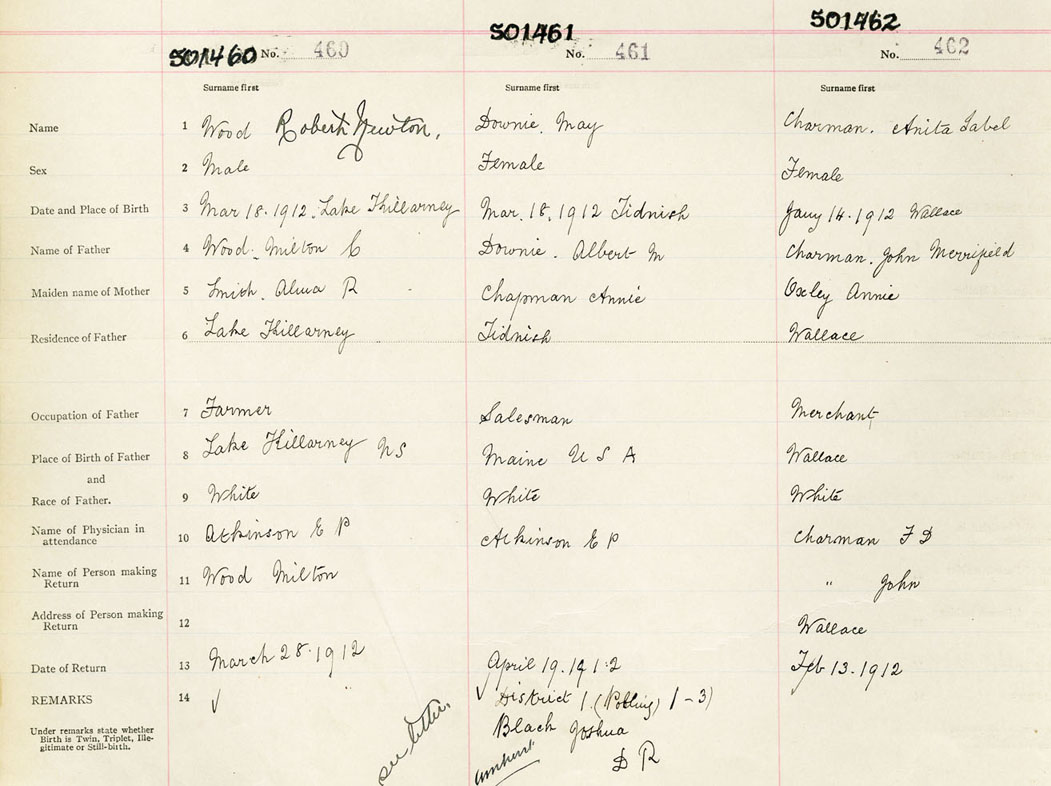 501460 No. 460 501461 No. 461 501462 No. 462
Surname first Surname first Surname first
Name 1 Wood Robert Newton. Downie. May Charman. Anita Isabel
Sex 2 Male Female Female
Date and Place of Birth 3 Mar 18. 1912. Lake Killarney Mar. 18, 1912 Tidnish Jany 14. 1912 Wallace
Name of Father 4 Wood. Milton C Downie. Albert M Charman. John Merrifield
Maiden name of Mother 5 Smith. Alma R Chapman Annie Oxley Annie
Residence of Father 6 Lake Killarney Tidnish Wallace
Occupation of Father 7 Farmer Salesman Merchant
Place of Birth of Father 8 Lake Killarney NS Maine U S A Wallace
and
Race of Father. 9 White White White
Name of Physician in
attendance 10 Atkinson E P Atkinson E P Charman F D
Name of Person making
Return 11 Wood Milton " John
Address of Person making
Return 12 Wallace
Date of Return 13 March 28. 1912 April 19. 1912 Feb 13. 1912
REMARKS 14 ✓ " ✓ District 1. (Polling) 1-3)
Under remarks state whether
Birth is Twin, Triplet, Ille-
gitimate or Still-birth.
see letter.
Black Joshua
D R
Amherst